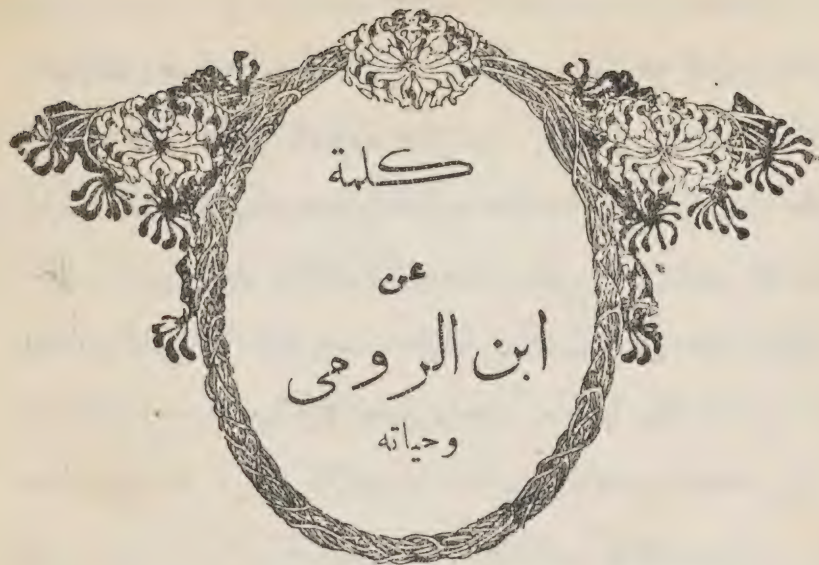 كلمة
عن
ابن الرومى
وحياته